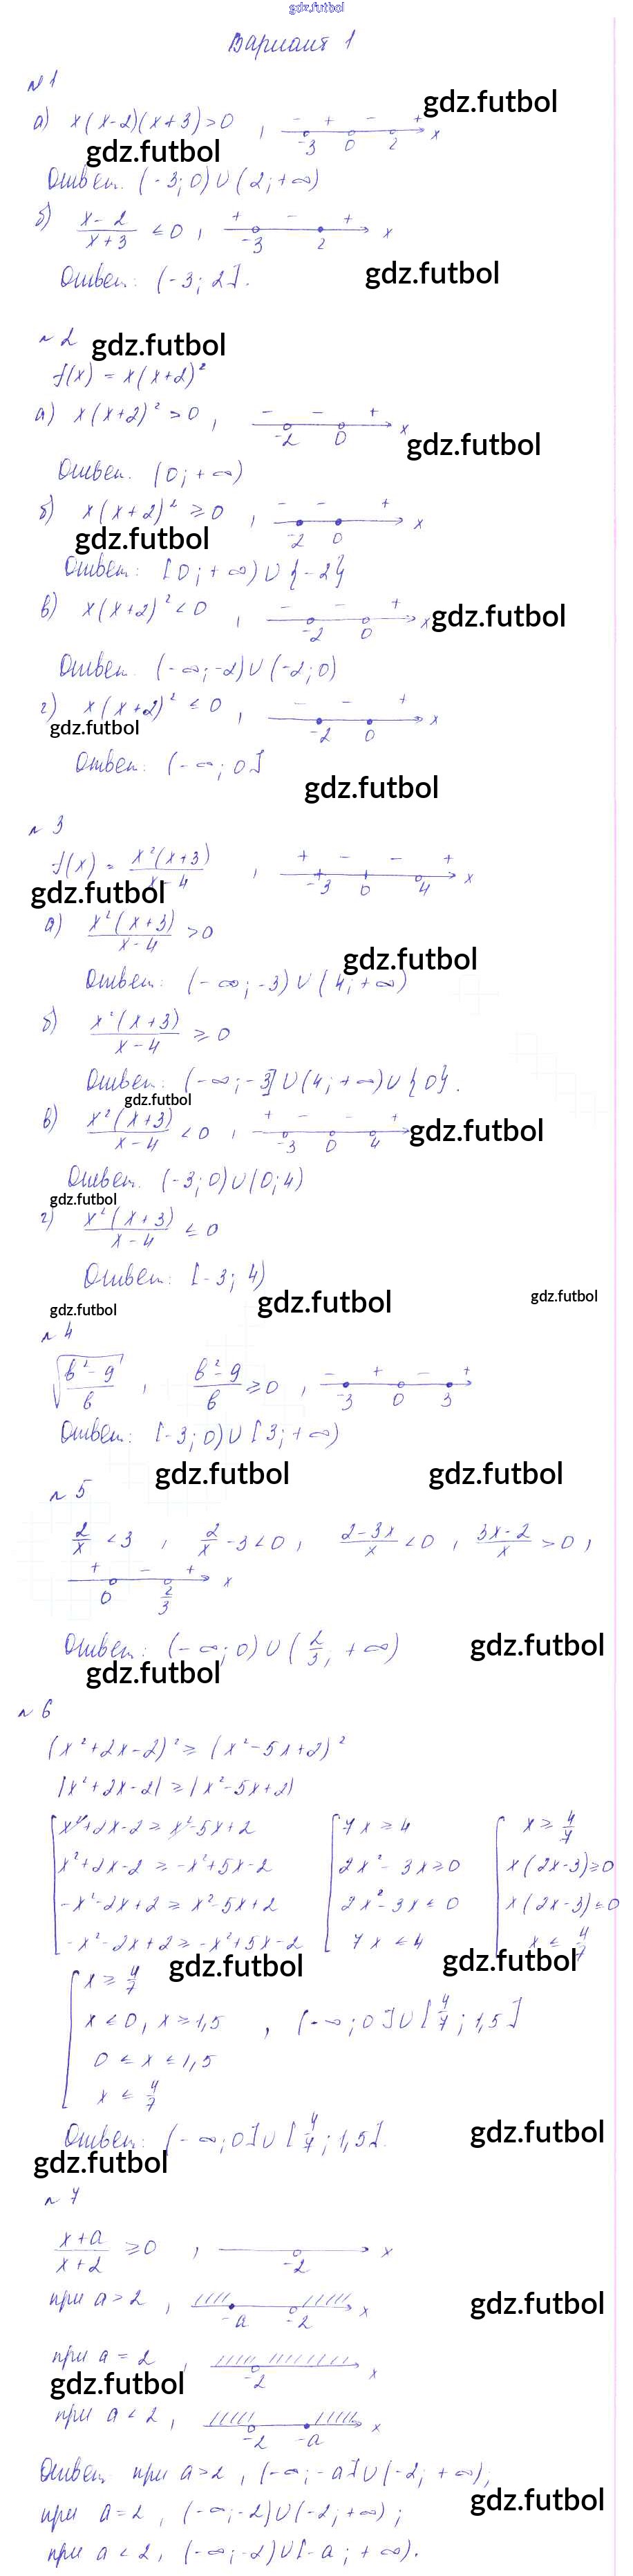 gdz.futbol
Вариант 1
№1
gdz.futbol
а) x(x-2)(x+3)>0 , - + - + -3 0 2 x
gdz.futbol
Ответ. (-3;0)∪(2;+∞)
б) x-2/x+3 ≤0 , + - + -3 2 x
gdz.futbol
Ответ: (-3; 2].
№2 gdz.futbol
f(x) = x(x+2)²
а) x(x+2)²>0 , - - + -2 0 x
gdz.futbol
Ответ. (0;+∞)
б) x(x+2)² ≥0 , - - + -2 0 x
gdz.futbol
Ответ: [0;+∞)∪{-2}
в) x(x+2)²<0 , - - + -2 0 x gdz.futbol
Ответ. (-∞;-2)∪(-2;0)
г) x(x+2)² ≤0 , - - + -2 0 x
gdz.futbol
Ответ: (-∞; 0]
gdz.futbol
№3
f(x) = x²(x+3)/x-4 , + - - + -3 0 4 x
gdz.futbol
а) x²(x+3)/x-4 >0
gdz.futbol
Ответ: (-∞;-3)∪(4;+∞)
б) x²(x+3)/x-4 ≥0
Ответ: (-∞;-3]∪(4;+∞)∪{0}.
gdz.futbol
в) x²(x+3)/x-4 <0 , + - - + -3 0 4 gdz.futbol
Ответ. (-3;0)∪(0;4)
gdz.futbol
г) x²(x+3)/x-4 ≤0
Ответ: [-3; 4)
gdz.futbol gdz.futbol gdz.futbol
№4
√(в²-9/в) , в²-9/в ≥0 , - + - + -3 0 3
Ответ: [-3;0)∪[3;+∞)
gdz.futbol gdz.futbol
№5
2/x <3 , 2/x -3<0 , 2-3x/x <0 , 3x-2/x >0 ,
+ - + 0 2/3 x
Ответ: (-∞;0)∪(2/3; +∞) gdz.futbol
gdz.futbol
№6
(x²+2x-2)² ≥ (x²-5x+2)²
|x²+2x-2| ≥ |x²-5x+2|
x²+2x-2 ≥ x²-5x+2 7x ≥ 4 x ≥ 4/7
x²+2x-2 ≥ -x²+5x-2 2x²-3x≥0 x(2x-3)≥0
-x²-2x+2 ≥ x²-5x+2 2x²-3x ≤ 0 x(2x-3)≤0
-x²-2x+2 ≥ -x²+5x-2 7x ≤ 4 x ≤ 4/7
gdz.futbol gdz.futbol
x ≥ 4/7
x ≤ 0, x ≥ 1,5 , (-∞;0]∪[4/7; 1,5]
0 ≤ x ≤ 1,5
x ≤ 4/7
Ответ: (-∞;0]∪[4/7; 1,5]. gdz.futbol
gdz.futbol
№7
x+a/x+2 ≥0 , -2 x
при a>2 , -a -2 x gdz.futbol
при a = 2 , -2 x
gdz.futbol
при a<2 , -2 -a x
Ответ. при a>2, (-∞;-a]∪(-2;+∞);
gdz.futbol
при a=2, (-∞;-2)∪(-2;+∞);
при a<2, (-∞;-2)∪[-a;+∞).